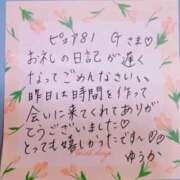 ピュア81 Gさま♡
お礼の日記が遅く
なってごめんなさい､､
昨日は時間を作って
会いに来てくれてありが
とうございました♡
とっても嬉しかったです〜♡
ゆうか